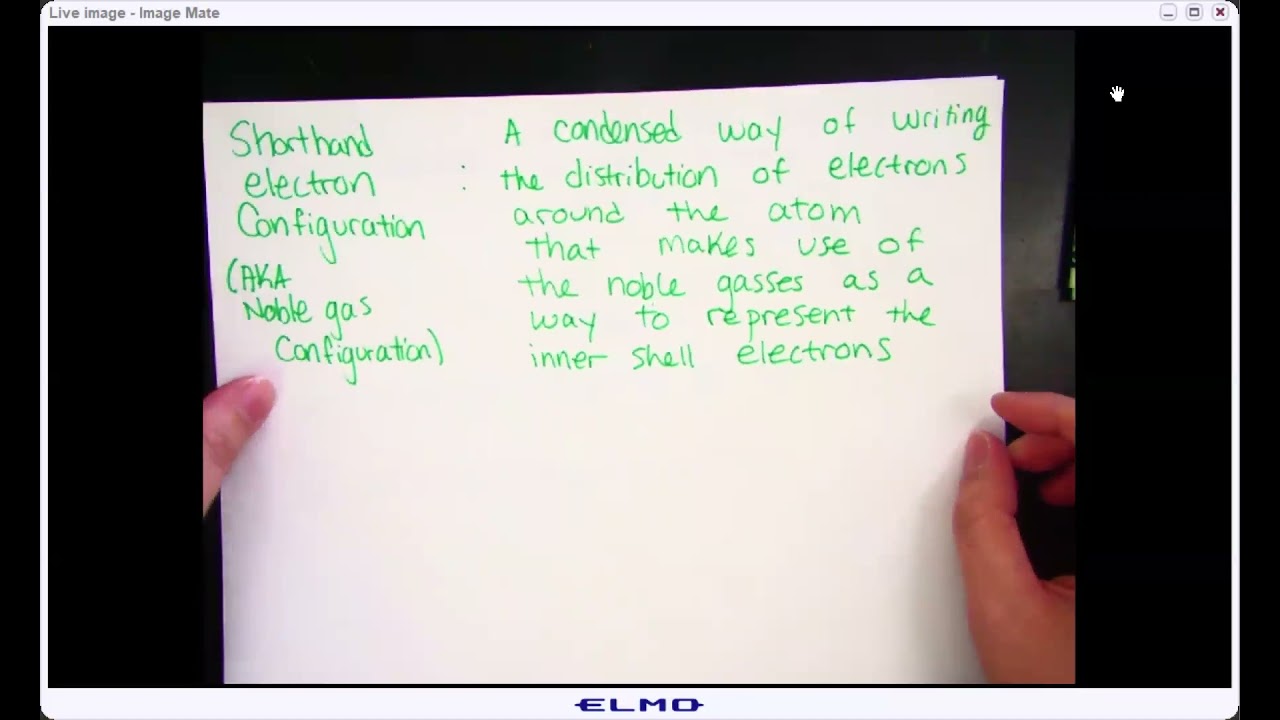 Live image - Image Mate
Shorthand
electron
Configuration
(AKA
Noble gas
Configuration)
:
A condensed way of writing
the distribution of electrons
around the atom
that makes use of
the noble gasses as a
way to represent the
inner shell electrons
ELMO